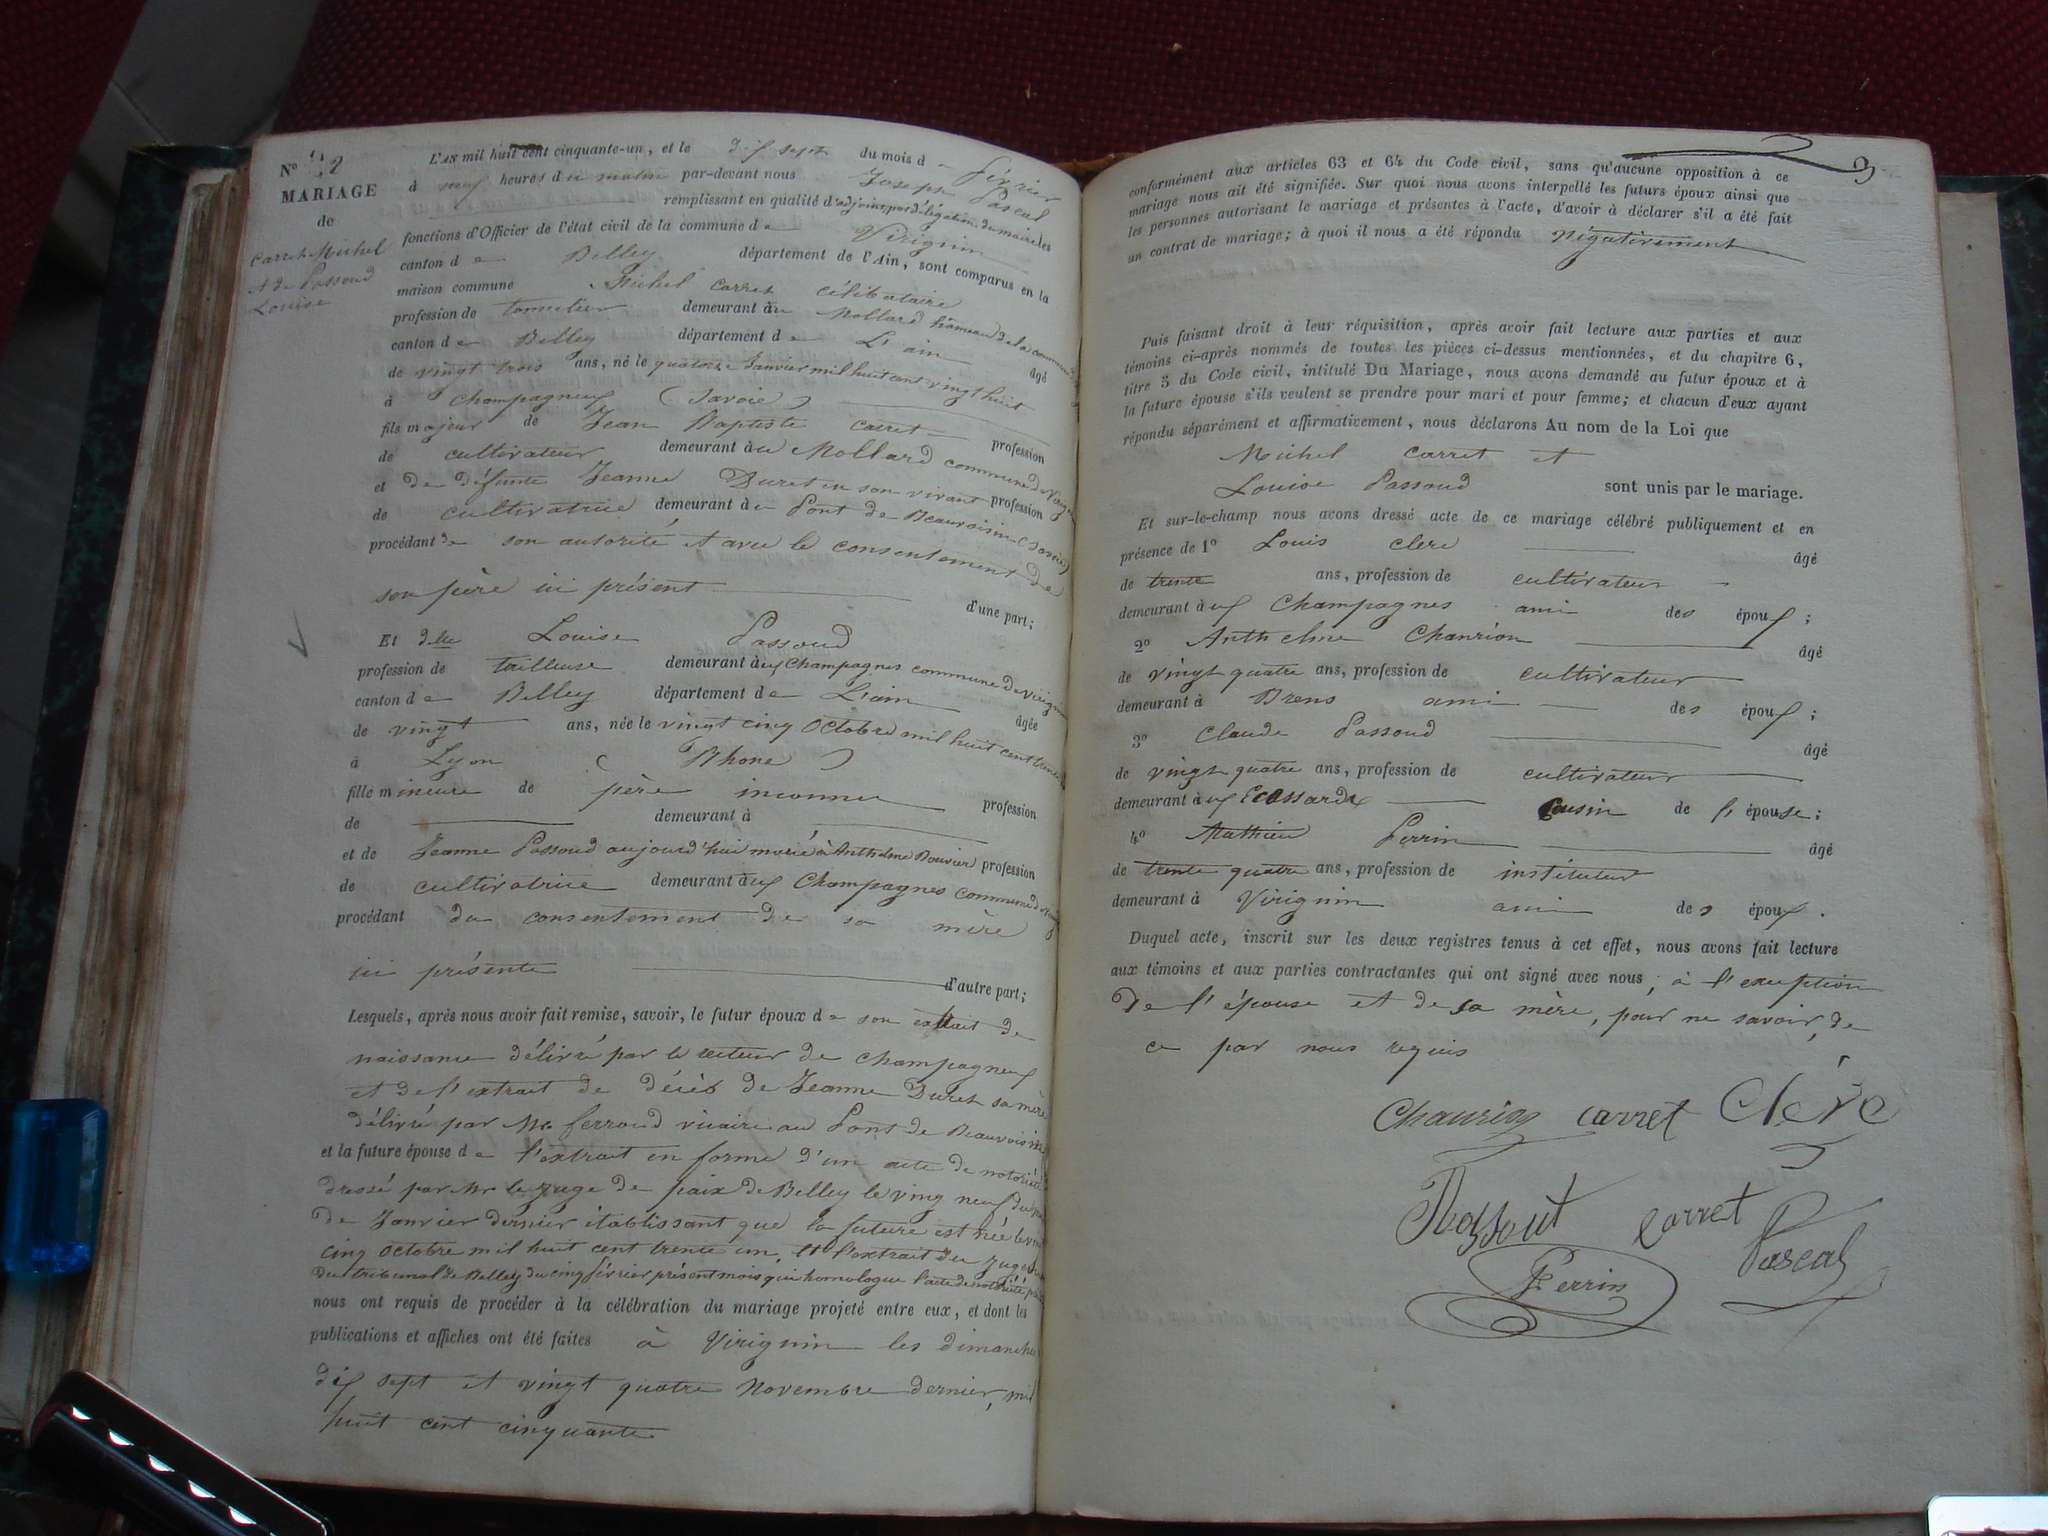 N° 2
MARIAGE
de
Carret Michel
et de Passoud
Louise
L'AN mil huit cent cinquante-un, et le dix sept du mois de février
à neuf heures du matin par-devant nous Joseph Pascal
remplissant en qualité d'adjoint, par délégation du maire les
fonctions d'Officier de l'état civil de la commune de Virignin
canton de Belley département de l'Ain, sont comparus en la
maison commune Michel Carret célibataire
profession de tonnelier demeurant au Mollard hameau de la commune
canton de Belley département de L'ain âgé
de vingt trois ans, né le quatorze Janvier mil huit cent vingt huit
à Champagneux (Savoie)
fils majeur de Jean Baptiste Carret profession
de cultivateur demeurant au Mollard commune de Virignin
et de défunte Jeanne Duret en son vivant profession
de cultivatrice demeurant au Pont de Beauvoisin (Savoie)
procédant de son autorité et avec le consentement de
son père ici présent d'une part;
Et dlle Louise Passoud
profession de tailleuse demeurant aux Champagnes commune de Virignin
canton de Belley département de L'ain âgée
de vingt ans, née le vingt cinq Octobre mil huit cent trente
à Lyon (Rhone)
fille mineure de père inconnu profession
de demeurant à
et de Jeanne Passoud aujourd'hui marié à Anthelme Bouvier profession
de cultivatrice demeurant aux Champagnes commune de
procédant du consentement de sa mère
ici présente d'autre part;
Lesquels, après nous avoir fait remise, savoir, le futur époux de son extrait de
naissance délivré par le recteur de Champagneux
et de l'extrait de décès de Jeanne Duret sa mère
délivré par Mr ferroud vicaire au Pont de Beauvoisin
et la future épouse de l'extrait en forme d'un acte de notoriété
dressé par Mr le juge de paix de Belley le ving neuf du
de Janvier dernier établissant que la future est née le
cinq octobre mil huit cent trente un, et l'extrait du
du tribunal de Belley du cinq février présent mois qui homologue l'acte de notoriété
nous ont requis de procéder à la célébration du mariage projeté entre eux, et dont les
publications et affiches ont été faites à Virignin les dimanches
dix sept et vingt quatre Novembre dernier, mil
huit cent cinquante
conformément aux articles 63 et 64 du Code civil, sans qu'aucune opposition à ce
mariage nous ait été signifiée. Sur quoi nous avons interpellé les futurs époux ainsi que
les personnes autorisant le mariage et présentes à l'acte, d'avoir à déclarer s'il a été fait
un contrat de mariage; à quoi il nous a été répondu négativement
Puis faisant droit à leur réquisition, après avoir fait lecture aux parties et aux
témoins ci-après nommés de toutes les pièces ci-dessus mentionnées, et du chapitre 6,
titre 5 du Code civil, intitulé Du Mariage, nous avons demandé au futur époux et à
la future épouse s'ils veulent se prendre pour mari et pour femme; et chacun d'eux ayant
répondu séparément et affirmativement, nous déclarons Au nom de la Loi que
Michel Carret et
Louise Passoud sont unis par le mariage.
Et sur-le-champ nous avons dressé acte de ce mariage célébré publiquement et en
présence de 1° Louis Clerc âgé
de trente ans, profession de cultivateur
demeurant aux Champagnes ami des époux;
2° Anthelme Chanrion âgé
de vingt quatre ans, profession de cultivateur
demeurant à Brens ami des époux;
3° Claude Passoud âgé
de vingt quatre ans, profession de cultivateur
demeurant aux Ecassards Cousin de l'épouse;
4° Mathieu Perrin âgé
de trente quatre ans, profession de instituteur
demeurant à Virignin ami des époux.
Duquel acte, inscrit sur les deux registres tenus à cet effet, nous avons fait lecture
aux témoins et aux parties contractantes qui ont signé avec nous, à l'exception
de l'épouse et de sa mère, pour ne savoir, de
ce par nous requis
Chanrion Carret Clerc
Passout Carret Pascal
Perrin